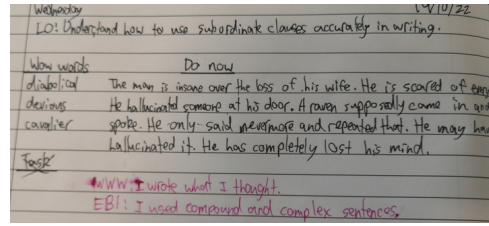 Wednesday 19/10/22
LO: Understand how to use subordinate clauses accurately in writing.
Wow words Do now
diabolical The man is insane over the loss of his wife. He is scared of
devious He hallucinated someone at his door. A raven supposedly came in and
cavalier spoke. He only said nevermore and repeated that. He may
hallucinated it. He has completely lost his mind.
Task
WWW: I wrote what I thought.
EBI: I used compound and complex sentences.